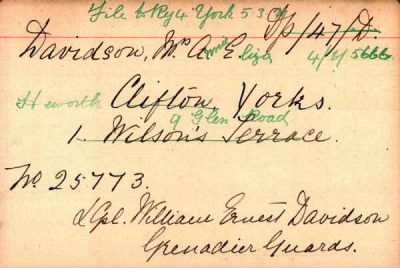 File to Ry4 York 53
Sp/47/D.
Davidson, Mrs Annie Eliza 4/Y/5666
Heworth Clifton, Yorks.
9 Glen Road
1. Wilson's Terrace.
No. 25773.
L/Cpl. William Ernest Davidson
Grenadier Guards.